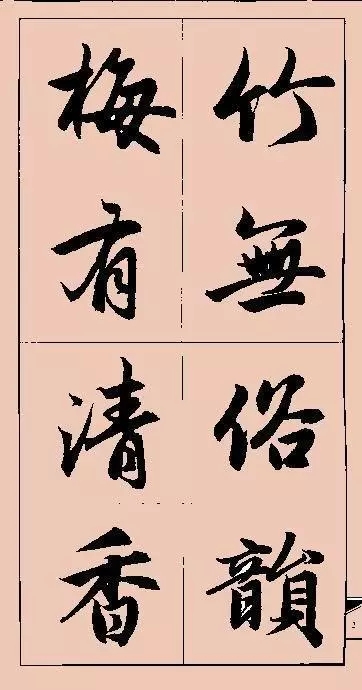 竹無俗韻
梅有清香